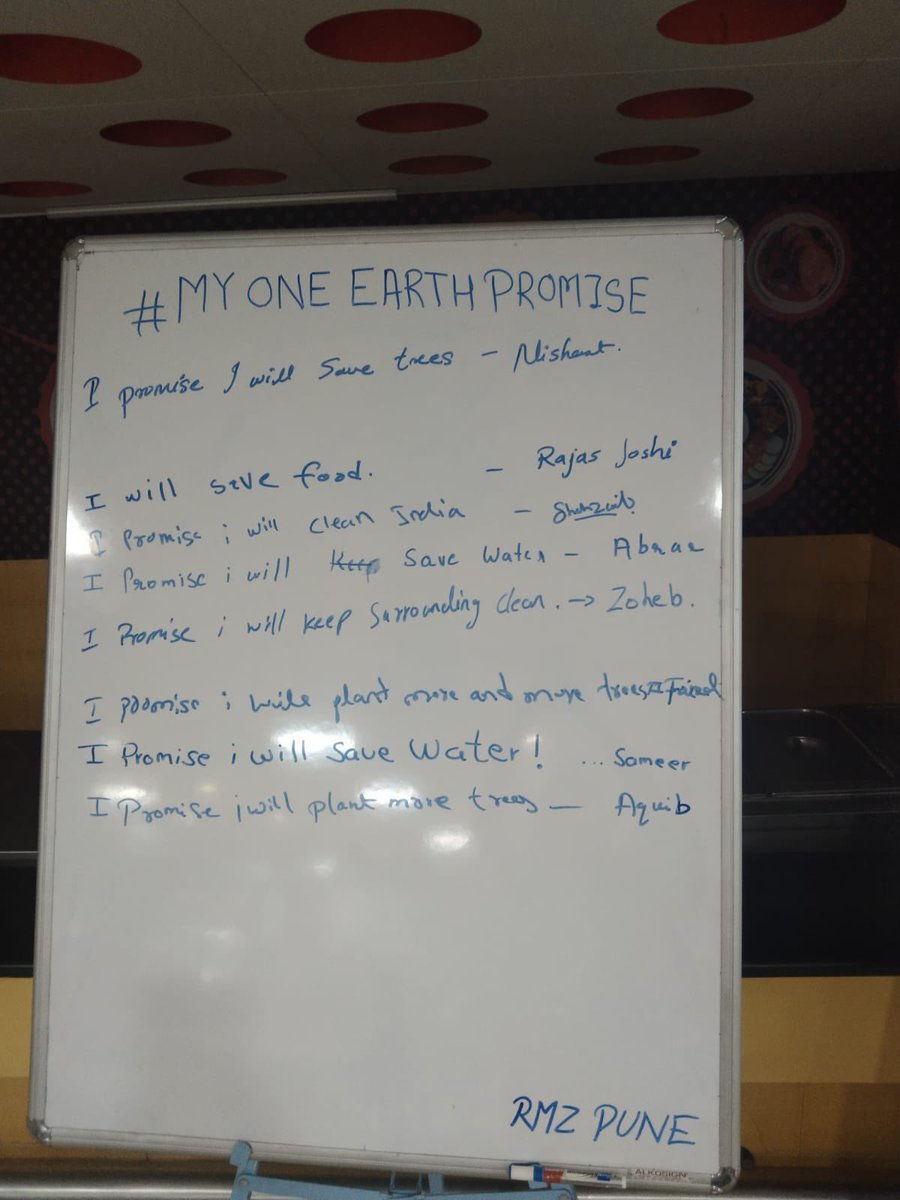 #MY ONE EARTH PROMISE
I promise I will save trees - Nishant.
I will save food. - Rajas Joshi
I Promise i will clean India - Shahzaib
I Promise i will Keep save water - Abrar
I Promise i will keep surrounding clean. → Zoheb.
I promise i will plant more and more trees
I Promise i will save water! ... Sameer
I Promise i will plant more trees - Aquib
RMZ PUNE
ALKOSIGN